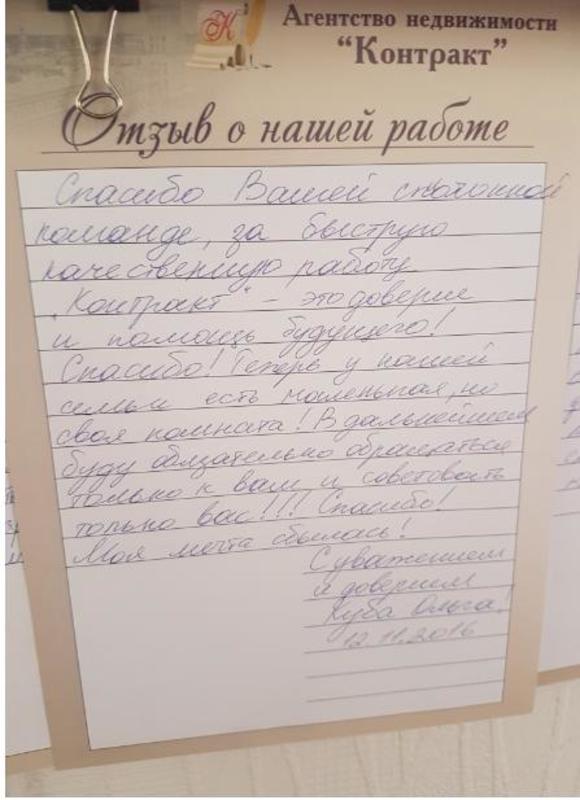 Агентство недвижимости
"Контракт"
Отзыв о нашей работе
Спасибо Вашей сплочонной
команде, за быструю
качественную работу
"Контракт" – это доверие
и помощь будущего!
Спасибо! Теперь у нашей
семьи есть маленькая, но
своя комната! В дальнейшем
буду обязательно обращаться
только к вам и советовать
только вас!!! Спасибо!
Моя мечта сбылась!
С уважением
и доверием
Куба Ольга!
12.11.2016